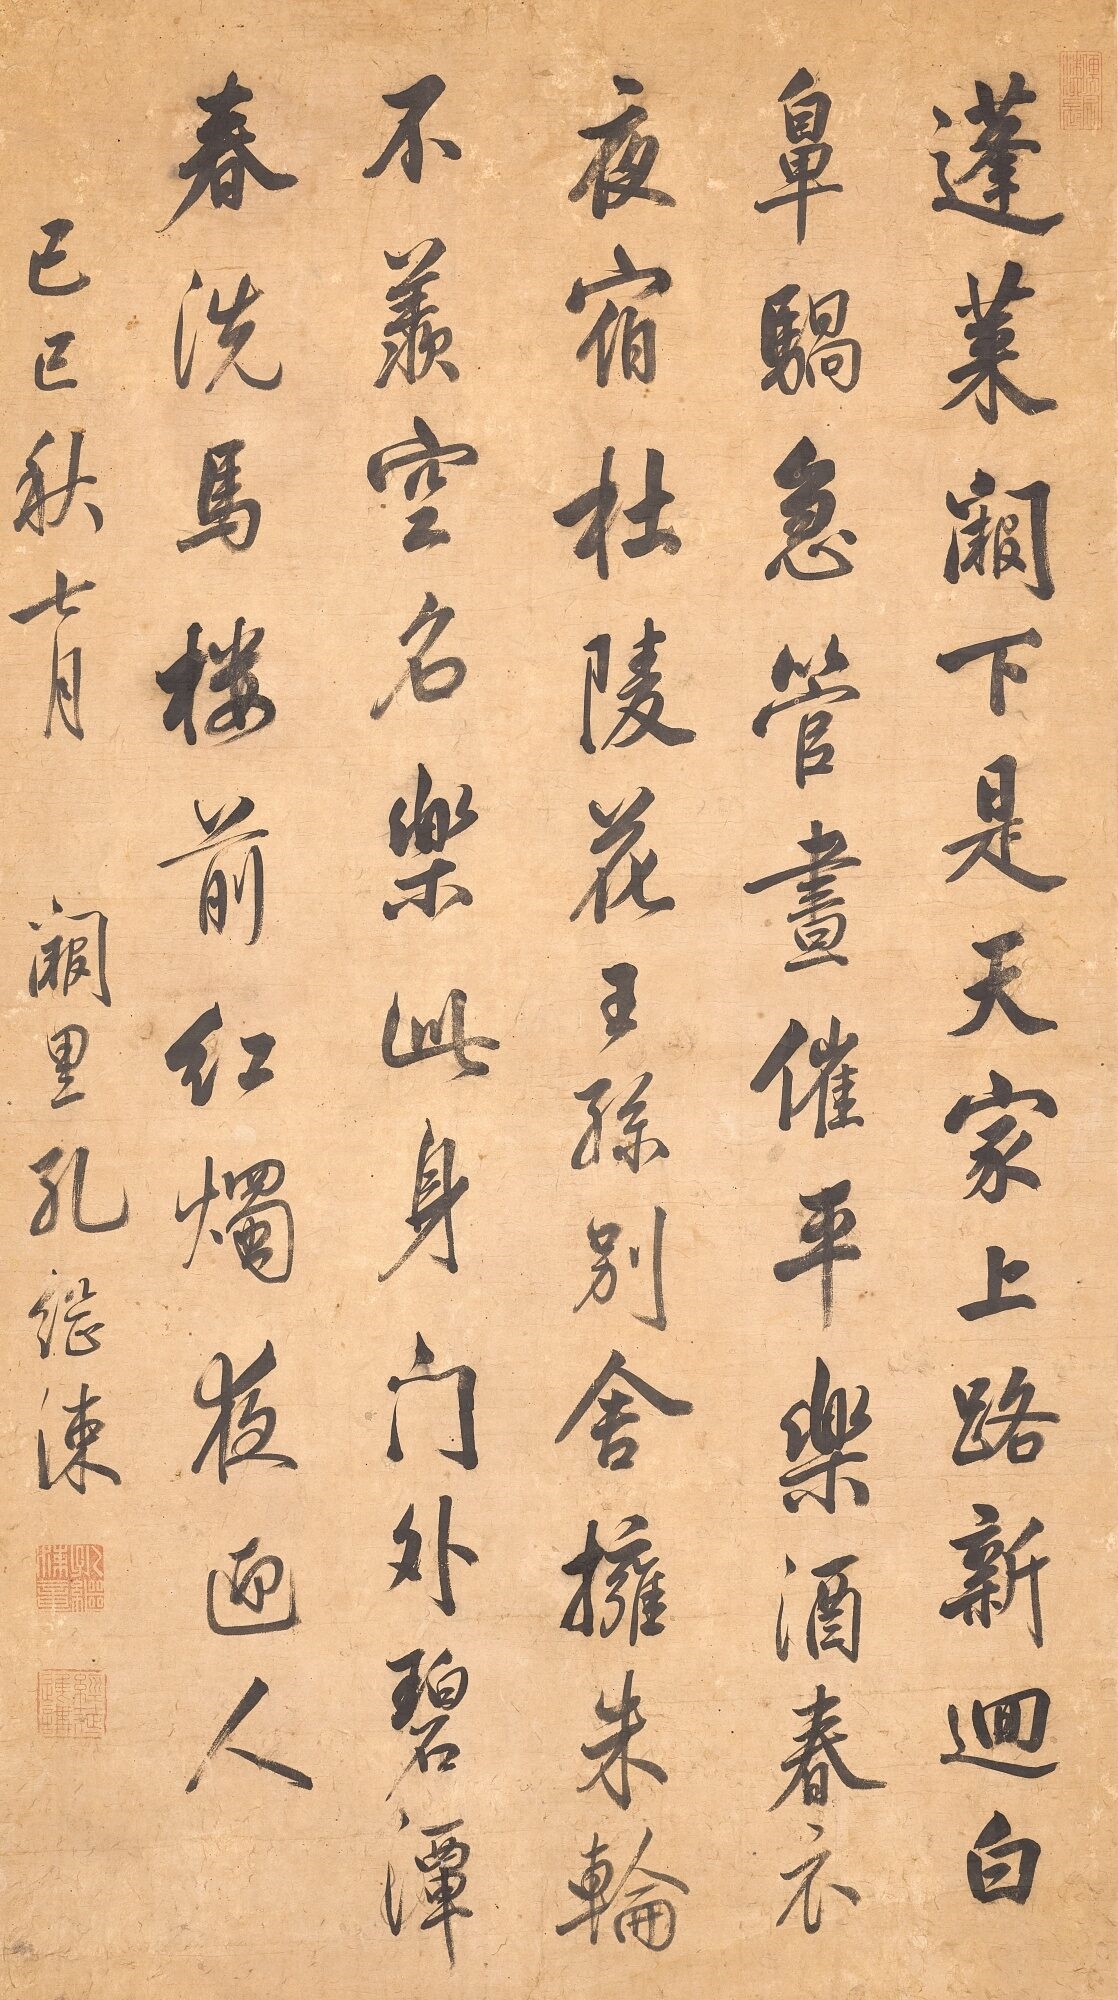 蓬莱闕下是天家上路新迴白
鼻騧急管晝催平樂酒春衣
夜宿杜陵花王孫别舍擁朱輪
不羡空名樂此身门外碧潭
春洗馬楼前红燭夜迎人
己巳秋七月 闕里孔継涑